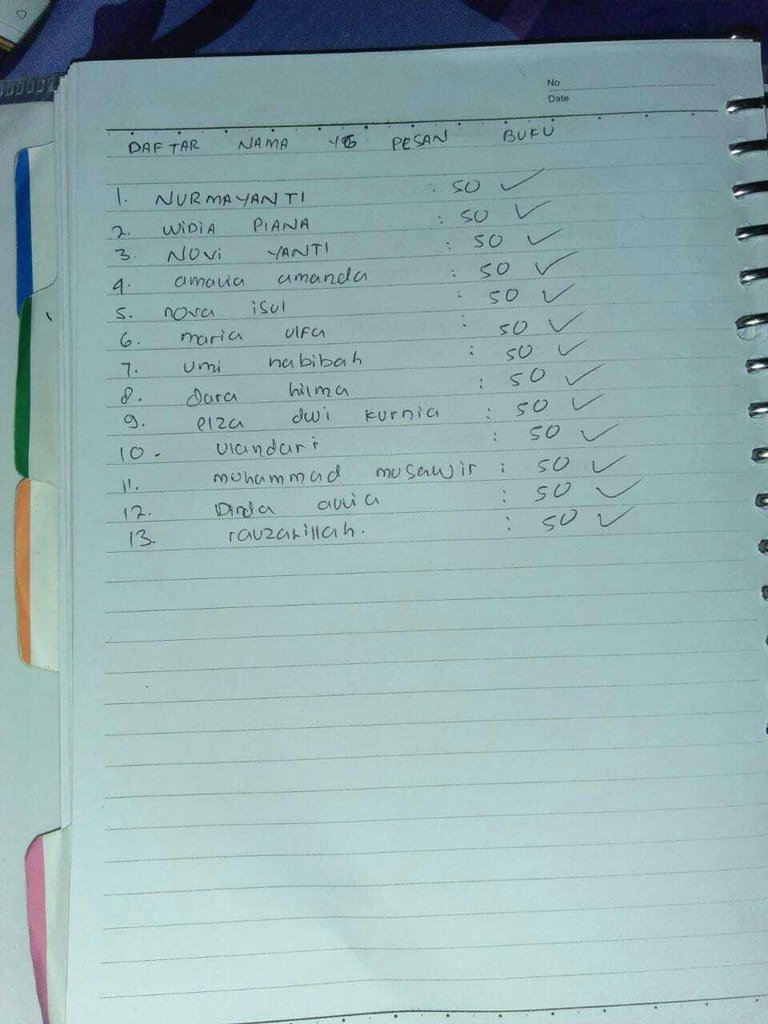 No
Date
DAFTAR NAMA YG PESAN BUKU
1. NURMAYANTI : 50 ✓
2. WIDIA PIANA : 50 ✓
3. NOVI YANTI : 50 ✓
4. amalia amanda : 50 ✓
5. nova isul : 50 ✓
6. maria ulfa : 50 ✓
7. umi habibah : 50 ✓
8. Dara hilma : 50 ✓
9. elza dwi kurnia : 50 ✓
10. ulandari : 50 ✓
11. muhammad musawir : 50 ✓
12. Dinda aulia : 50 ✓
13. rauzatillah. : 50 ✓